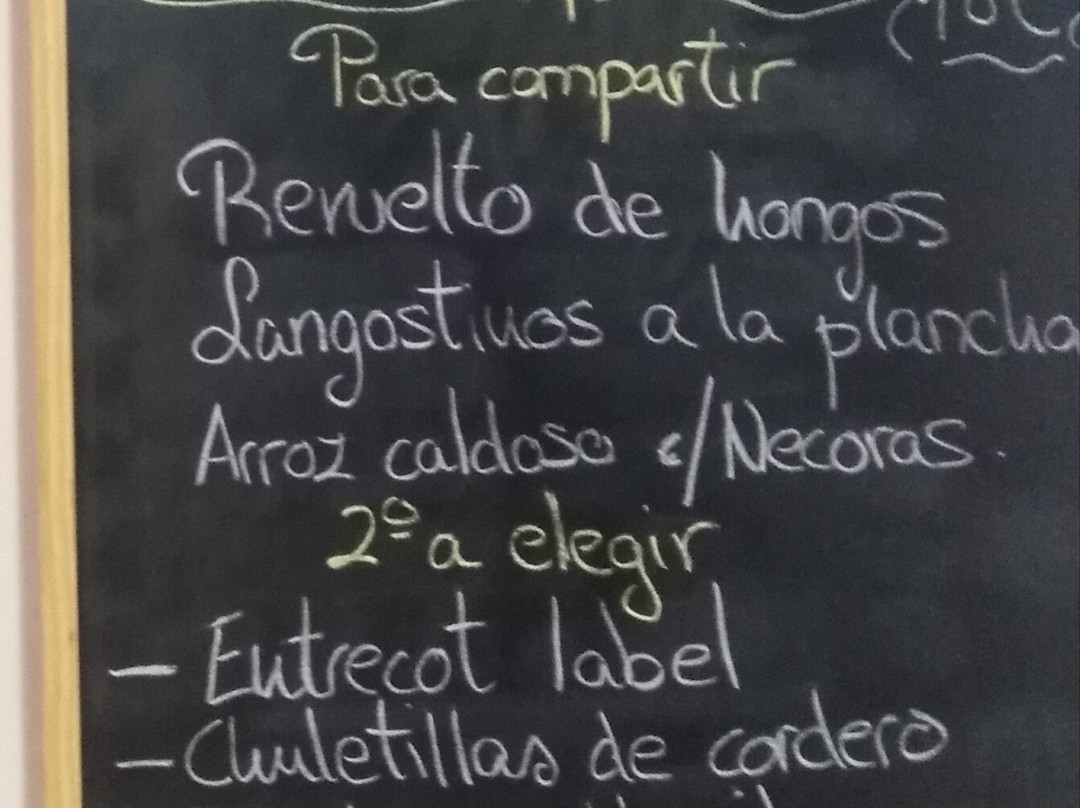 Para compartir
Revuelto de hongos
Langostinos a la plancha
Arroz caldoso c/Necoras.
2º a elegir
- Entrecot label
- Chuletillas de cordero